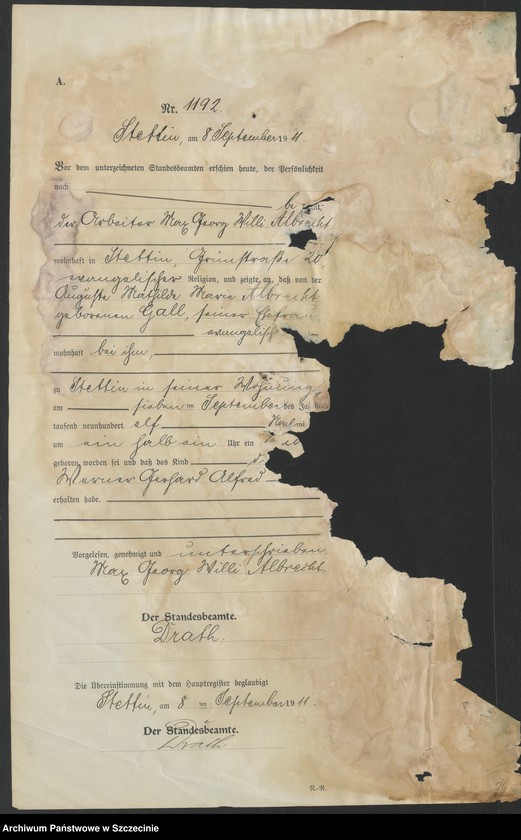 A.
Nr. 1192.
Stettin, am 8 September 1911.
Vor dem unterzeichneten Standesbeamten erschien heute, der Persönlichkeit
nach be kannt,
der Arbeiter Max Georg Willi Albrecht
wohnhaft in Stettin, Grünstraße 20
evangelischer Religion, und zeigte an, daß von der
Auguste Mathilde Marie Albrecht
geborenen Gall, seiner Ehefrau,
evangelisch
wohnhaft bei ihm,
zu Stettin in seiner Wohnung,
am sieben ten September des Jahres
tausend neunhundert elf
um ein halb ein Uhr ein
geboren worden sei und daß das Kind
Werner Gerhard Alfred
erhalten habe.
Vorgelesen, genehmigt und unterschrieben.
Max Georg Willi Albrecht.
Der Standesbeamte.
Drath.
Die Übereinstimmung mit dem Hauptregister beglaubigt
Stettin, am 8 ten September 1911.
Der Standesbeamte.
Drath
R.-R.
Archiwum Państwowe w Szczecinie